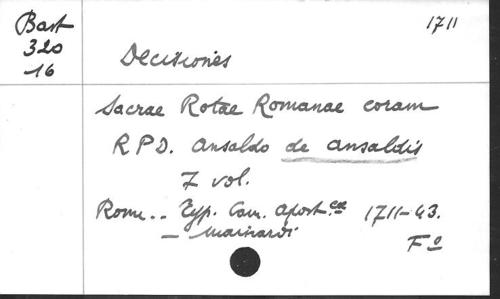 Bast
320
16
1711
Decisiones
Sacrae Rotae Romanae coram
R P D. Ansaldo de Ansaldis
7 vol.
Rome.. Typ. Cam. Apost.ca 1711-43.
- Mainardi
Fo